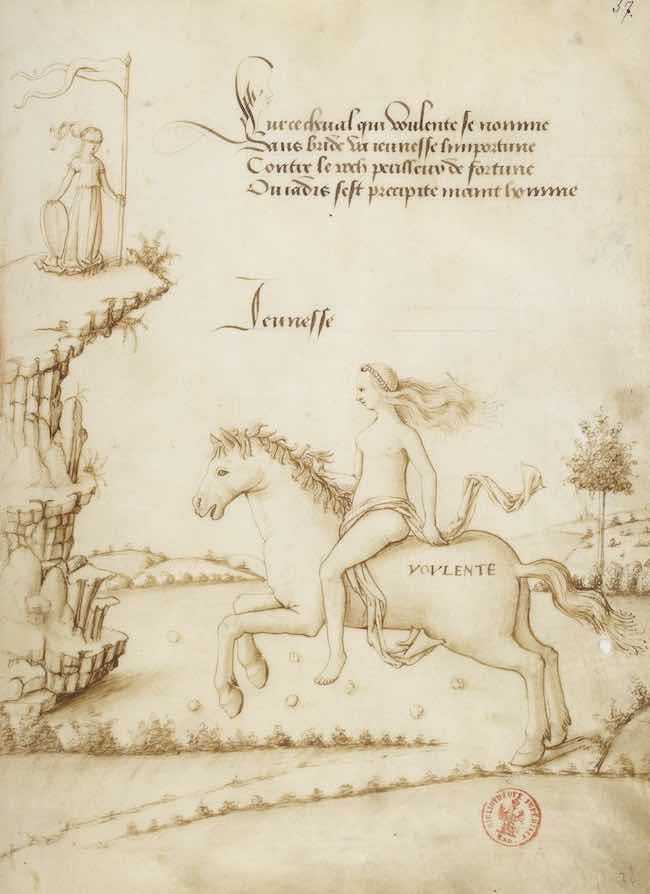 37
Sur ce cheual qui Voulente se nomme
Sans bride va ieunesse limportune
Contre le roch perilleux de fortune
Ou iadis sest precipite maint homme
Jeunesse
VOVLENTE
BIBLIOTHEQUE IMPERIALE
MAN.